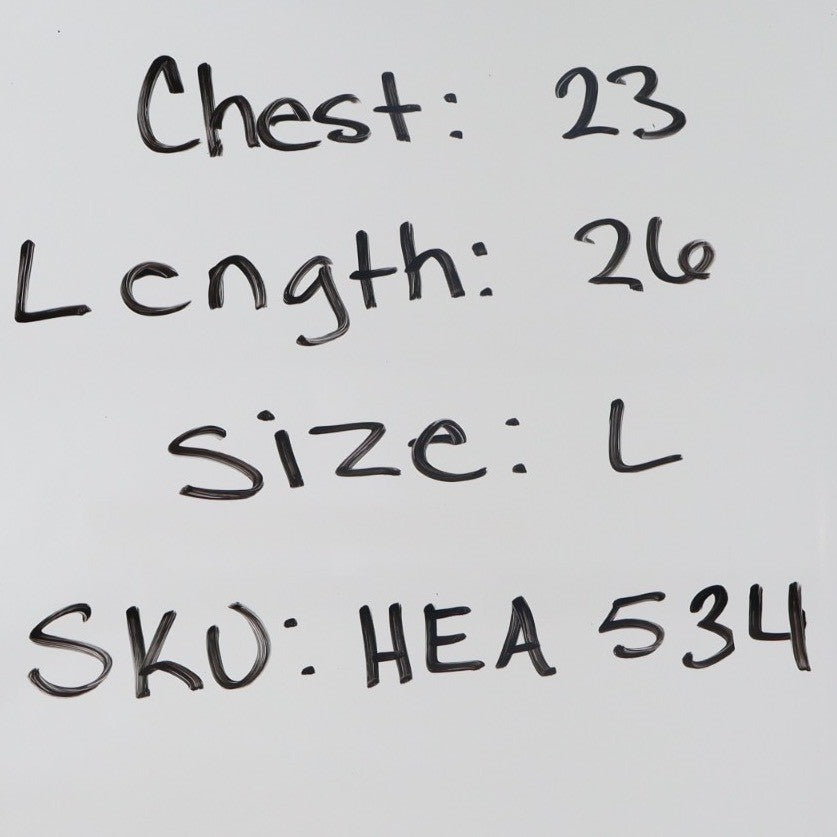 Chest: 23
Length: 26
Size: L
SKU: HEA 534